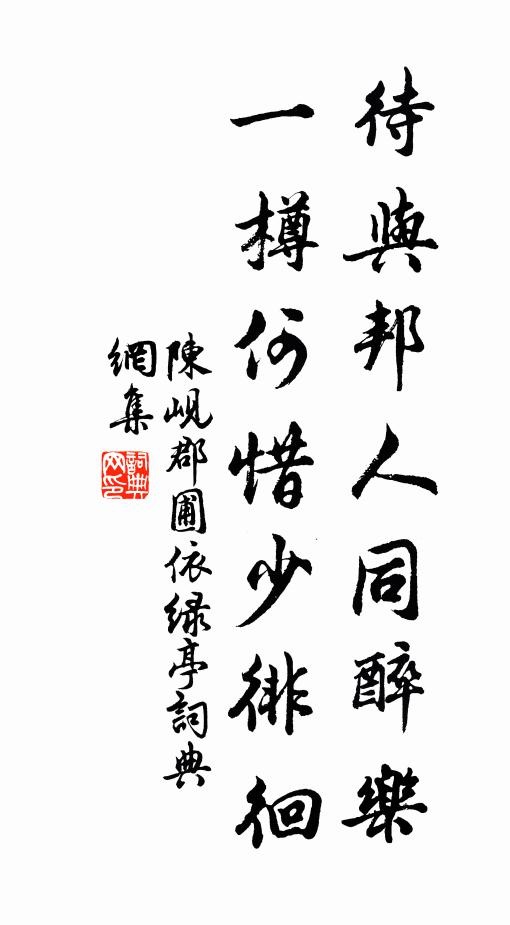 待與邦人同醉樂
一樽何惜少徘徊
陳峴郡圃依緑亭詞典
網集
詞典网印